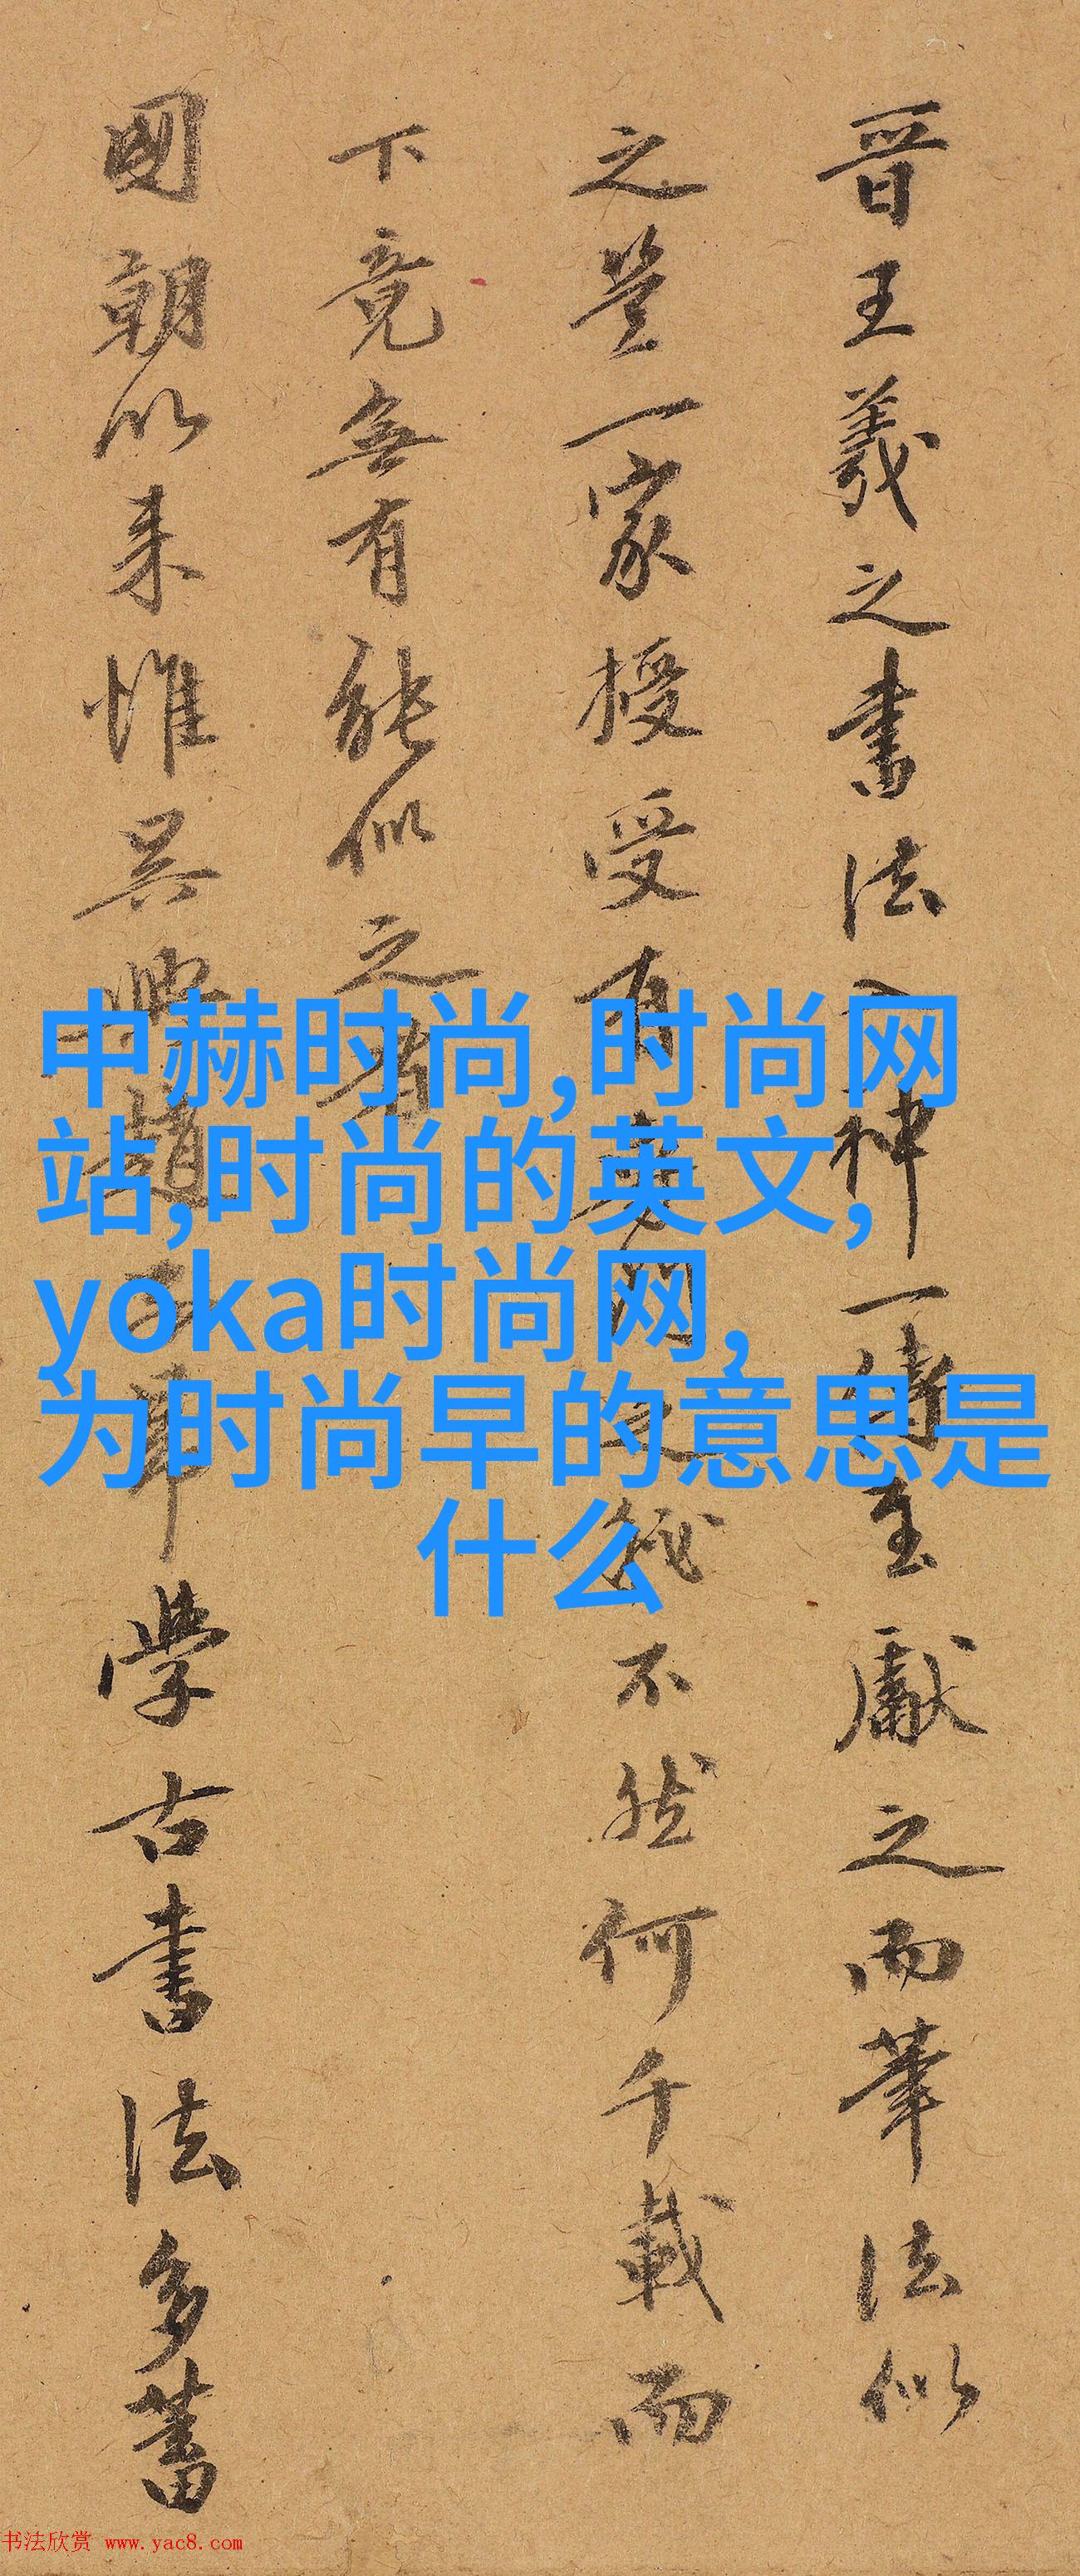 晋王羲之書法入神一傳至獻之而筆法似
之豈一家授受有
不然何千載而
下竟無有能似之者
國朝以来惟吴興趙
學古書法多蓄
中赫时尚,时尚网
站,时尚的英文,
yoka时尚网,
为时尚早的意思是
什么
书法欣赏 www.yac8.com